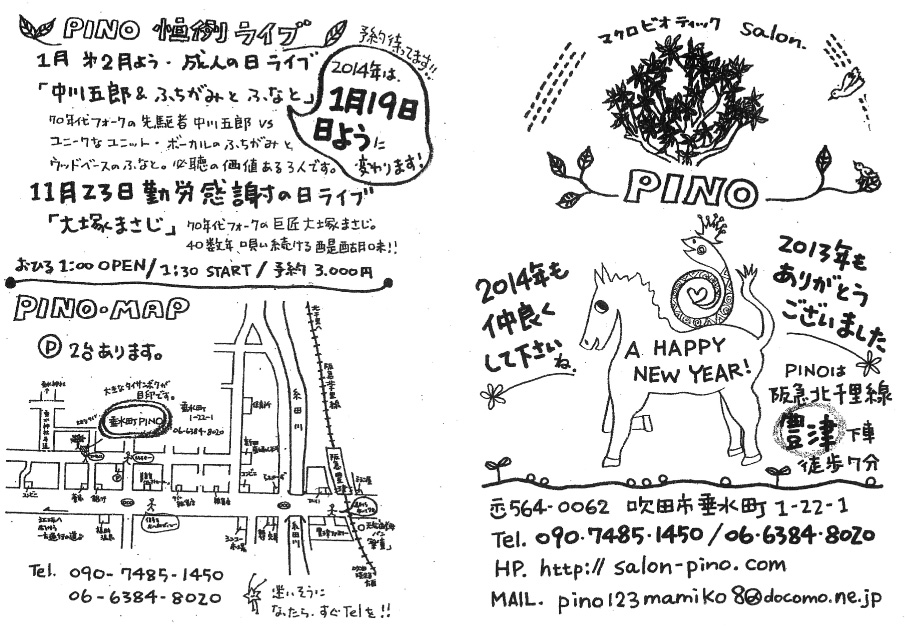 PINO 恒例ライブ
予約待ってます!!
1月 第2月よう・成人の日ライブ
「中川五郎&ふちがみとふなと」
70年代フォークの先駆者 中川五郎 VS
ユニークなユニット・ボーカルのふちがみと
ウッドベースのふなと。必聴の価値ある3人です。
2014年は、
1月19日
日ように
変わります!
11月23日勤労感謝の日ライブ
「大塚まさじ」
70年代フォークの巨匠大塚まさじ。
40数年、唄い続ける醍醐味!!
おひる 1:00 OPEN / 1:30 START / 予約 3.000円
PINO・MAP
P 2台あります。
大きなタイサンボクが
目印です。
垂水町PINO
垂水町
1-22-1
06-6384-8020
糸田川
阪急千里線
阪急豊津
コンビニ
糸田川
Tel. 090-7485-1450
06-6384-8020
迷いそうに
なったら、すぐTelを!!
マクロビオティック salon.
PINO
2014年も
仲良く
して下さい
ね。
2013年も
ありがとう
ございました
A HAPPY
NEW YEAR!
PINOは
阪急北千里線
豊津 下車
徒歩7分
〒564-0062 吹田市垂水町 1-22-1
Tel. 090-7485-1450 / 06-6384-8020
HP. http:// salon-pino.com
MAIL. pino123mamiko8@docomo.ne.jp